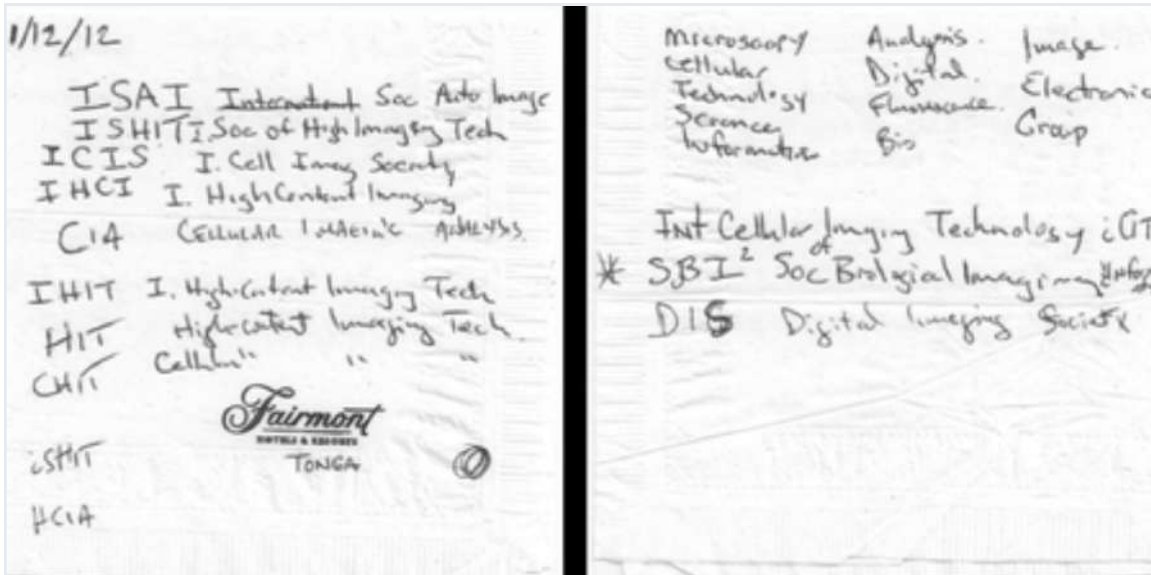 1/12/12
ISAI International Soc Auto Image
ISHIT I. Soc of High Imaging Tech
ICIS I. Cell Imag Society
IHCI I. High Content Imaging
CIA CELLULAR IMAGING ANALYSIS
IHIT I. High Content Imaging Tech
HIT High Content Imaging Tech
CHIT Cellular " " "
Fairmont
HOTELS & RESORTS
TONGA
iSHIT
HCIA
Microscopy Analysis Image
Cellular Digital Electronic
Technology Fluorescence Group
Science Bio
Informatics
INT Cellular Imaging Technology iCIT
* SBI² Soc of Biological Imaging
DIS Digital Imaging Society